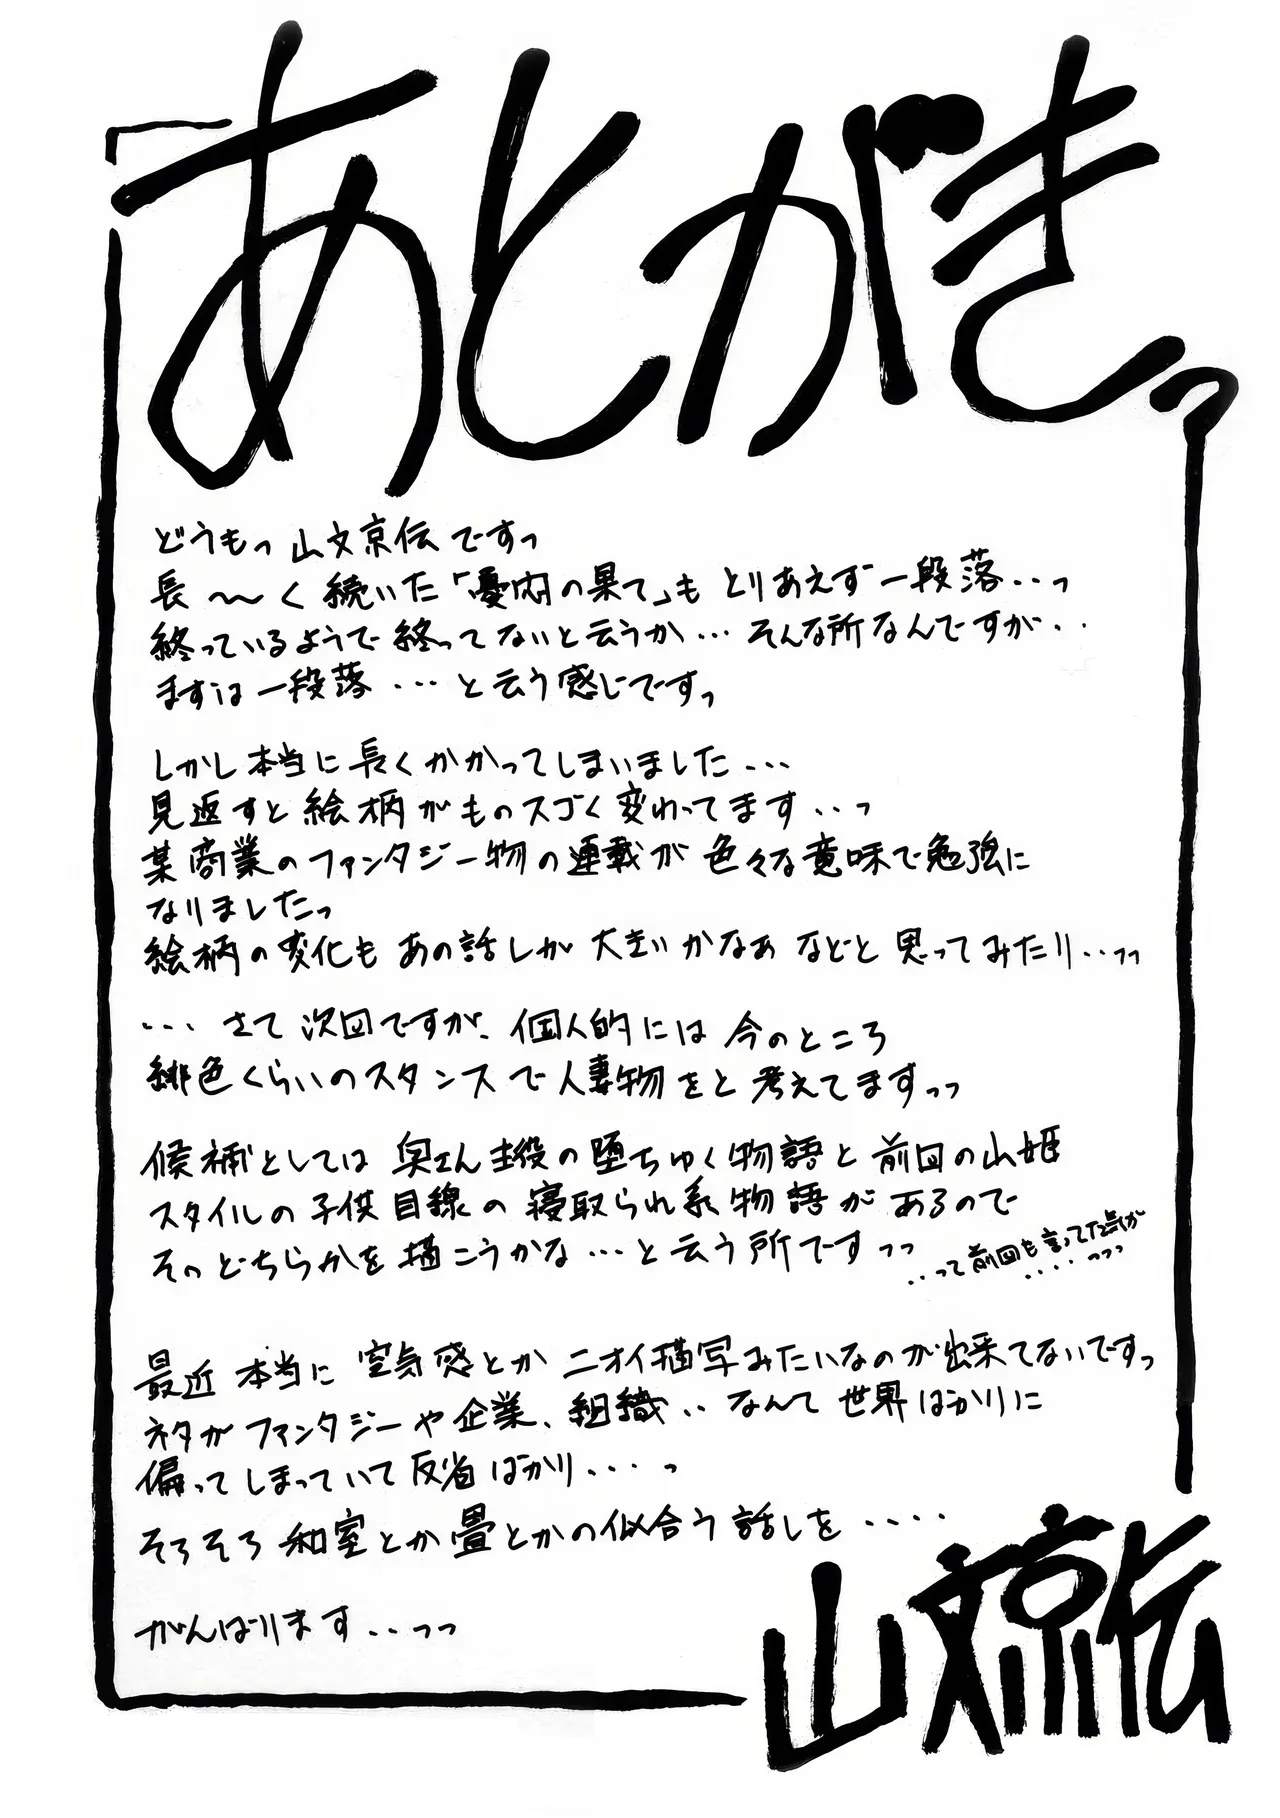 あとがきっ
どうもっ 山文京伝ですっ
長〜〜く続いた「憂内の果て」も とりあえず一段落‥っ
終っているようで終ってないと云うか… そんな所なんですが‥
まずは一段落…と云う感じですっ
しかし本当に長くかかってしまいました…
見返すと絵柄がものスゴく変わってます‥っ
某商業のファンタジー物の連載が色々な意味で勉強に
なりましたっ
絵柄の変化も あの話しが 大きいかなぁ などと 思ってみたり‥っっ
… さて次回ですが、個人的には今のところ
緋色くらいのスタンスで人妻物をと考えてますっっ
候補としては 奥さん主役の堕ちゆく物語と前回の山姫
スタイルの子供目線の寝取られ系物語があるので
そのどちらかを描こうかな…と云う所ですっっ
‥って前回も言ってた気が
‥‥っっっ
最近 本当に 空気感とか ニオイ描写みたいなのが出来てないですっ
ネタがファンタジーや企業、組織‥なんて世界ばかりに
偏ってしまっていて反省ばかり‥‥っ
そろそろ和室とか畳とかの似合う話しを‥‥
がんばります‥っっ
山文京伝